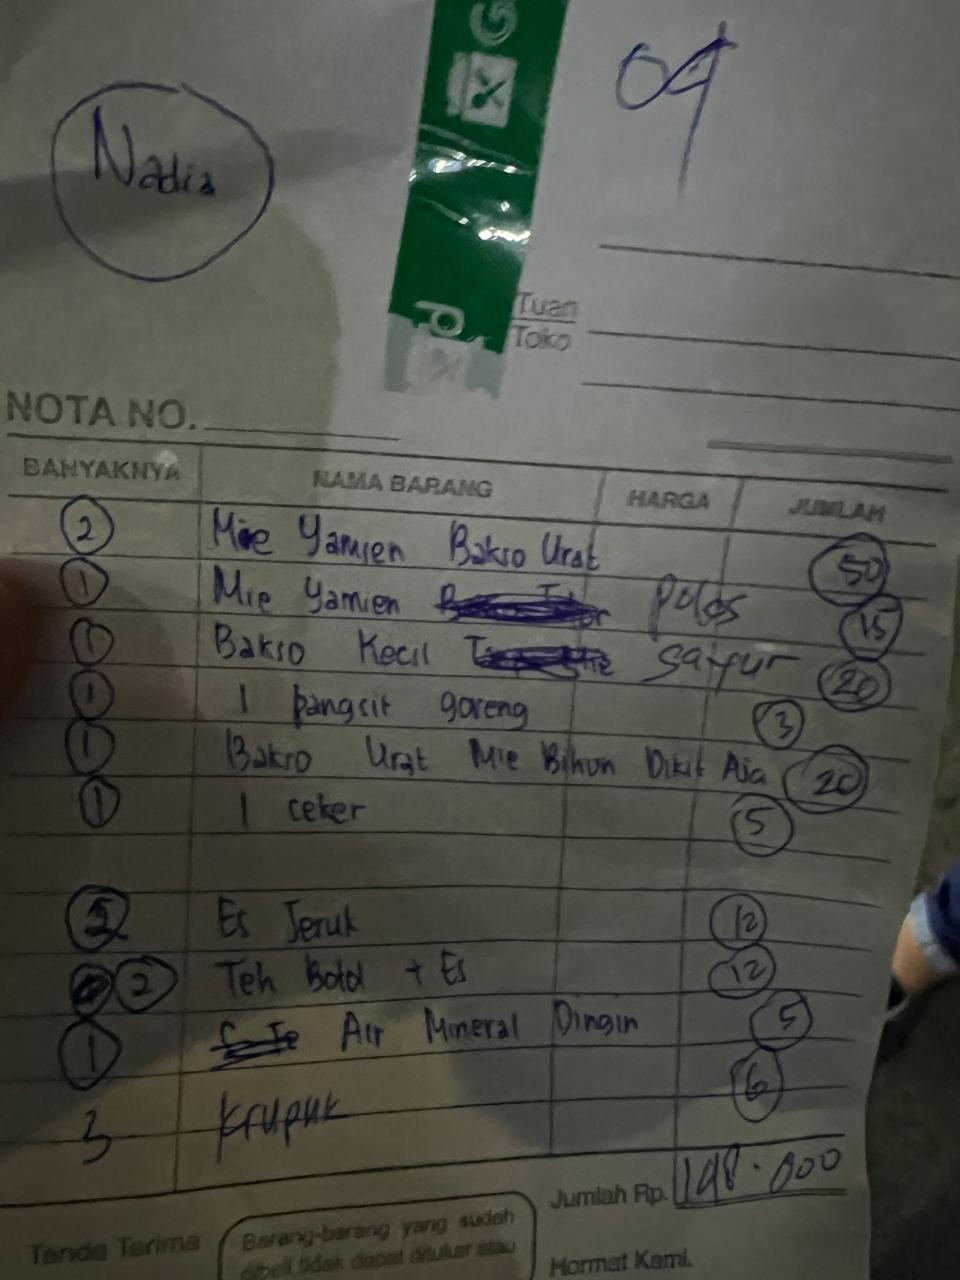 Nadia
04
Tuan
Toko
NOTA NO.
BANYAKNYA NAMA BARANG HARGA JUMLAH
2 Mie Yamien Bakso Urat 50
1 Mie Yamien Polos 15
1 Bakso Kecil Sayur 20
1 1 pangsit goreng 3
1 Bakso Urat Mie Bihun Dikit Aja 20
1 1 ceker 5
2 Es Jeruk 12
2 Teh Botol + Es 12
1 Air Mineral Dingin 5
3 Krupuk 6
Jumlah Rp. 148.000
Tanda Terima
Barang-barang yang sudah
dibeli tidak dapat ditukar atau
Hormat Kami.